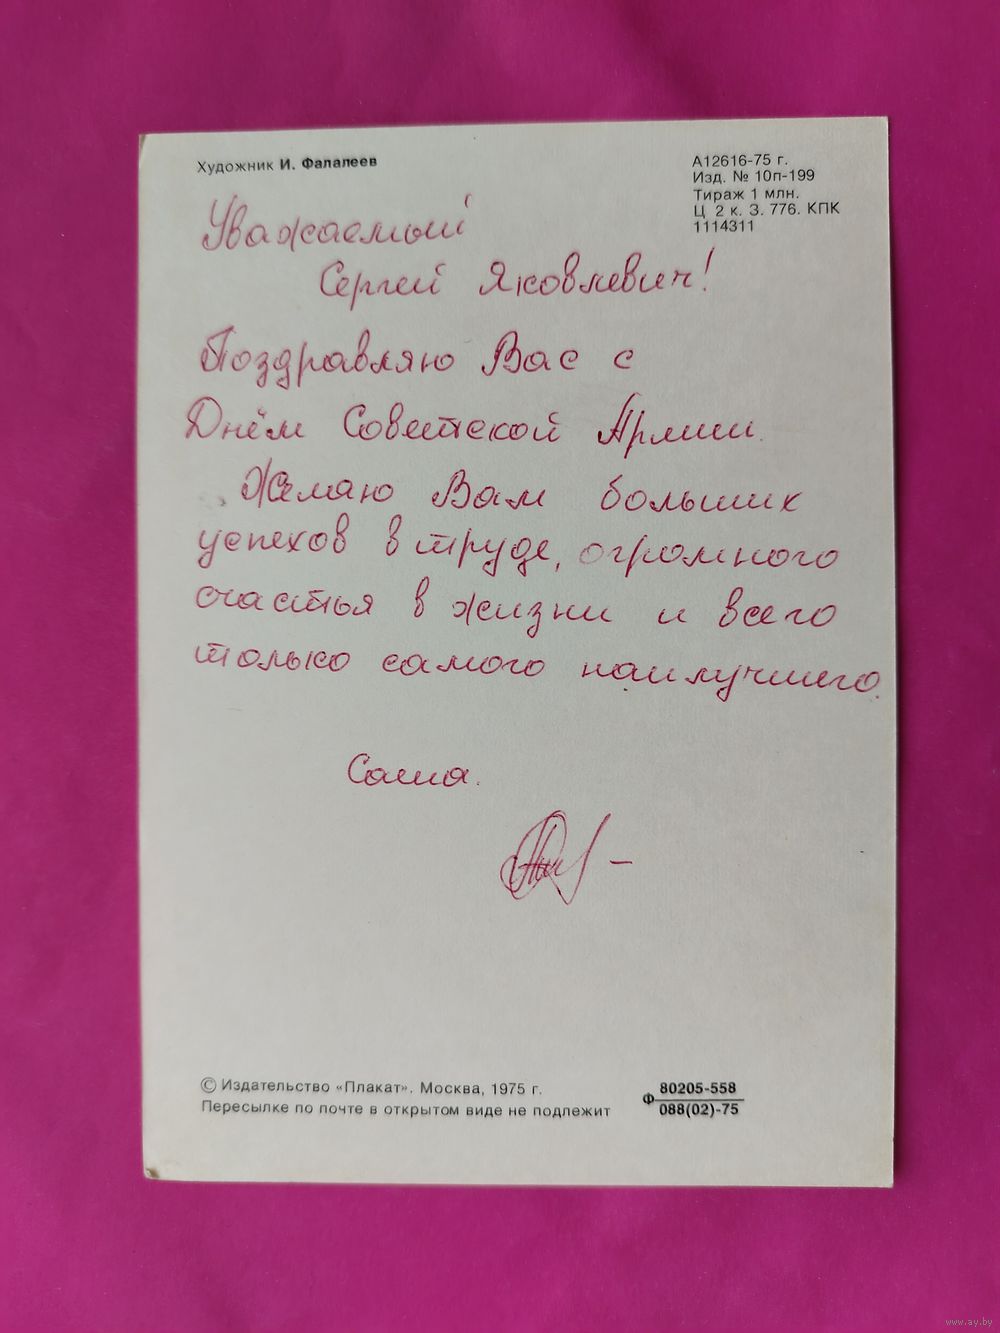 Художник И. Фалалеев
А12616-75 г.
Изд. № 10п-199
Тираж 1 млн.
Ц 2 к. З. 776. КПК
1114311
Уважаемый
Сергей Яковлевич!
Поздравляю Вас с
Днём Советской Армии.
Желаю Вам больших
успехов в труде, огромного
счастья в жизни и всего
только самого наилучшего.
Саша.
© Издательство «Плакат». Москва, 1975 г.
Пересылке по почте в открытом виде не подлежит
Ф 80205-558
088(02)-75
www.ay.by